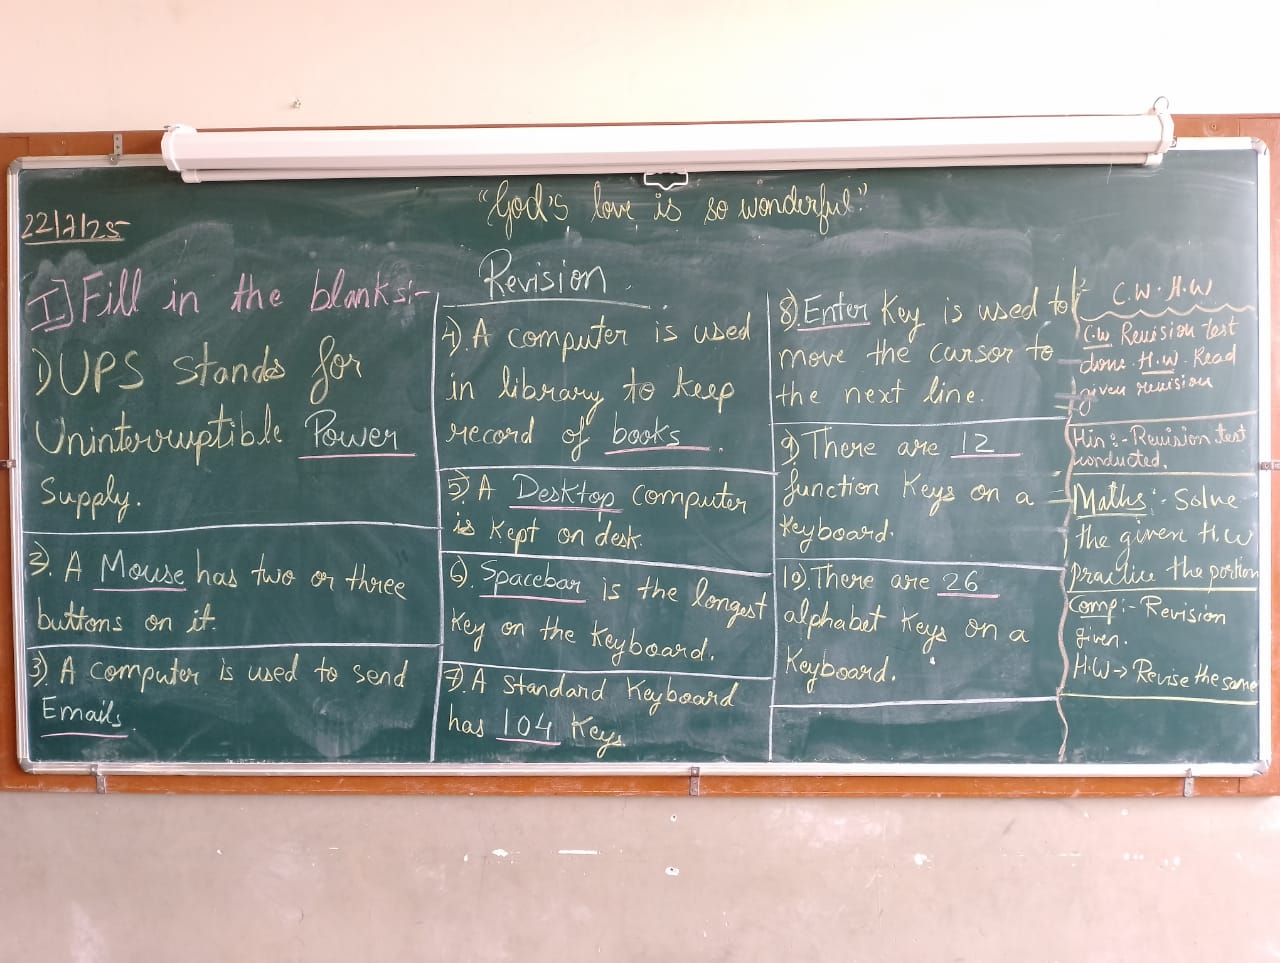 "God's love is so wonderful."
22/7/25
Revision.
I] Fill in the blanks:-
1) UPS stands for
Uninterruptible Power
Supply.
2). A Mouse has two or three
buttons on it.
3). A computer is used to send
Emails.
4). A computer is used
in library to keep
record of books.
5). A Desktop computer
is kept on desk.
6). Spacebar is the longest
key on the keyboard.
7). A standard keyboard
has 104 keys.
8). Enter key is used to
move the cursor to
the next line.
9) There are 12
function keys on a
keyboard.
10). There are 26
alphabet keys on a
keyboard.
C.W. H.W
C.W Revision test
done. H.W. Read
given revision
Hin:- Revision test
conducted.
Maths:- Solve
the given H.W
practice the portion
Comp:- Revision
given.
H.W → Revise the same